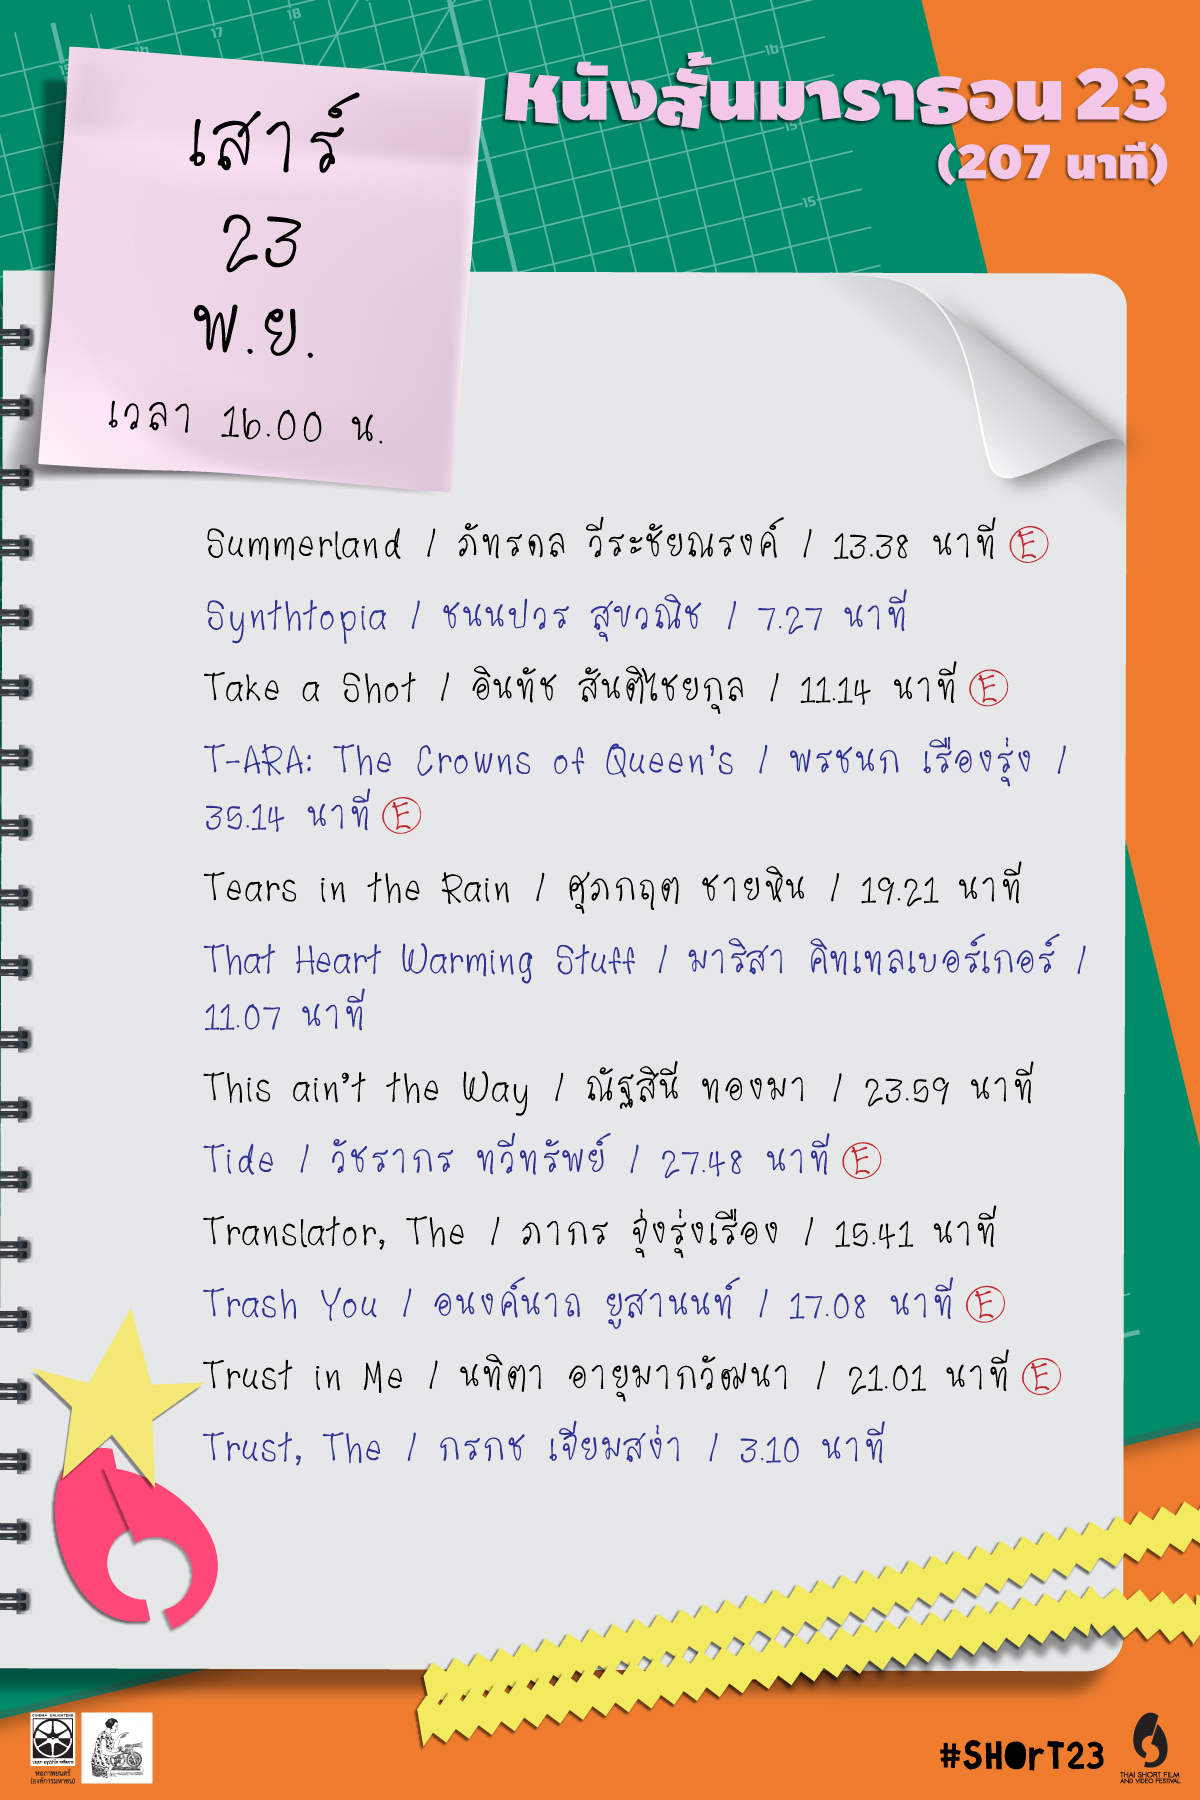 หนังสั้นมาราธอน 23
(207 นาที)
เสาร์
23
พ.ย.
เวลา 16.00 น.
Summerland / ภัทรดล วีระชัยณรงค์ / 13.38 นาที E
Synthtopia / ชนนปวร สุขวณิช / 7.27 นาที
Take a Shot / อินทัช สันติไชยกุล / 11.14 นาที E
T-ARA: The Crowns of Queen's / พรชนก เรืองรุ่ง /
35.14 นาที E
Tears in the Rain / ศุภกฤต ชายหิน / 19.21 นาที
That Heart Warming Stuff / มาริสา คิทเทลเบอร์เกอร์ /
11.07 นาที
This ain't the Way / ณัฐสินี ทองมา / 23.59 นาที
Tide / วัชรากร ทวีทรัพย์ / 27.48 นาที E
Translator, The / ภากร จุ่งรุ่งเรือง / 15.41 นาที
Trash You / อนงค์นาถ ยูสานนท์ / 17.08 นาที E
Trust in Me / นทิตา อายุมากวัฒนา / 21.01 นาที E
Trust, The / กรกช เจียมสง่า / 3.10 นาที
หอภาพยนตร์
(องค์การมหาชน)
#SHOrT23
THAI SHORT FILM
AND VIDEO FESTIVAL